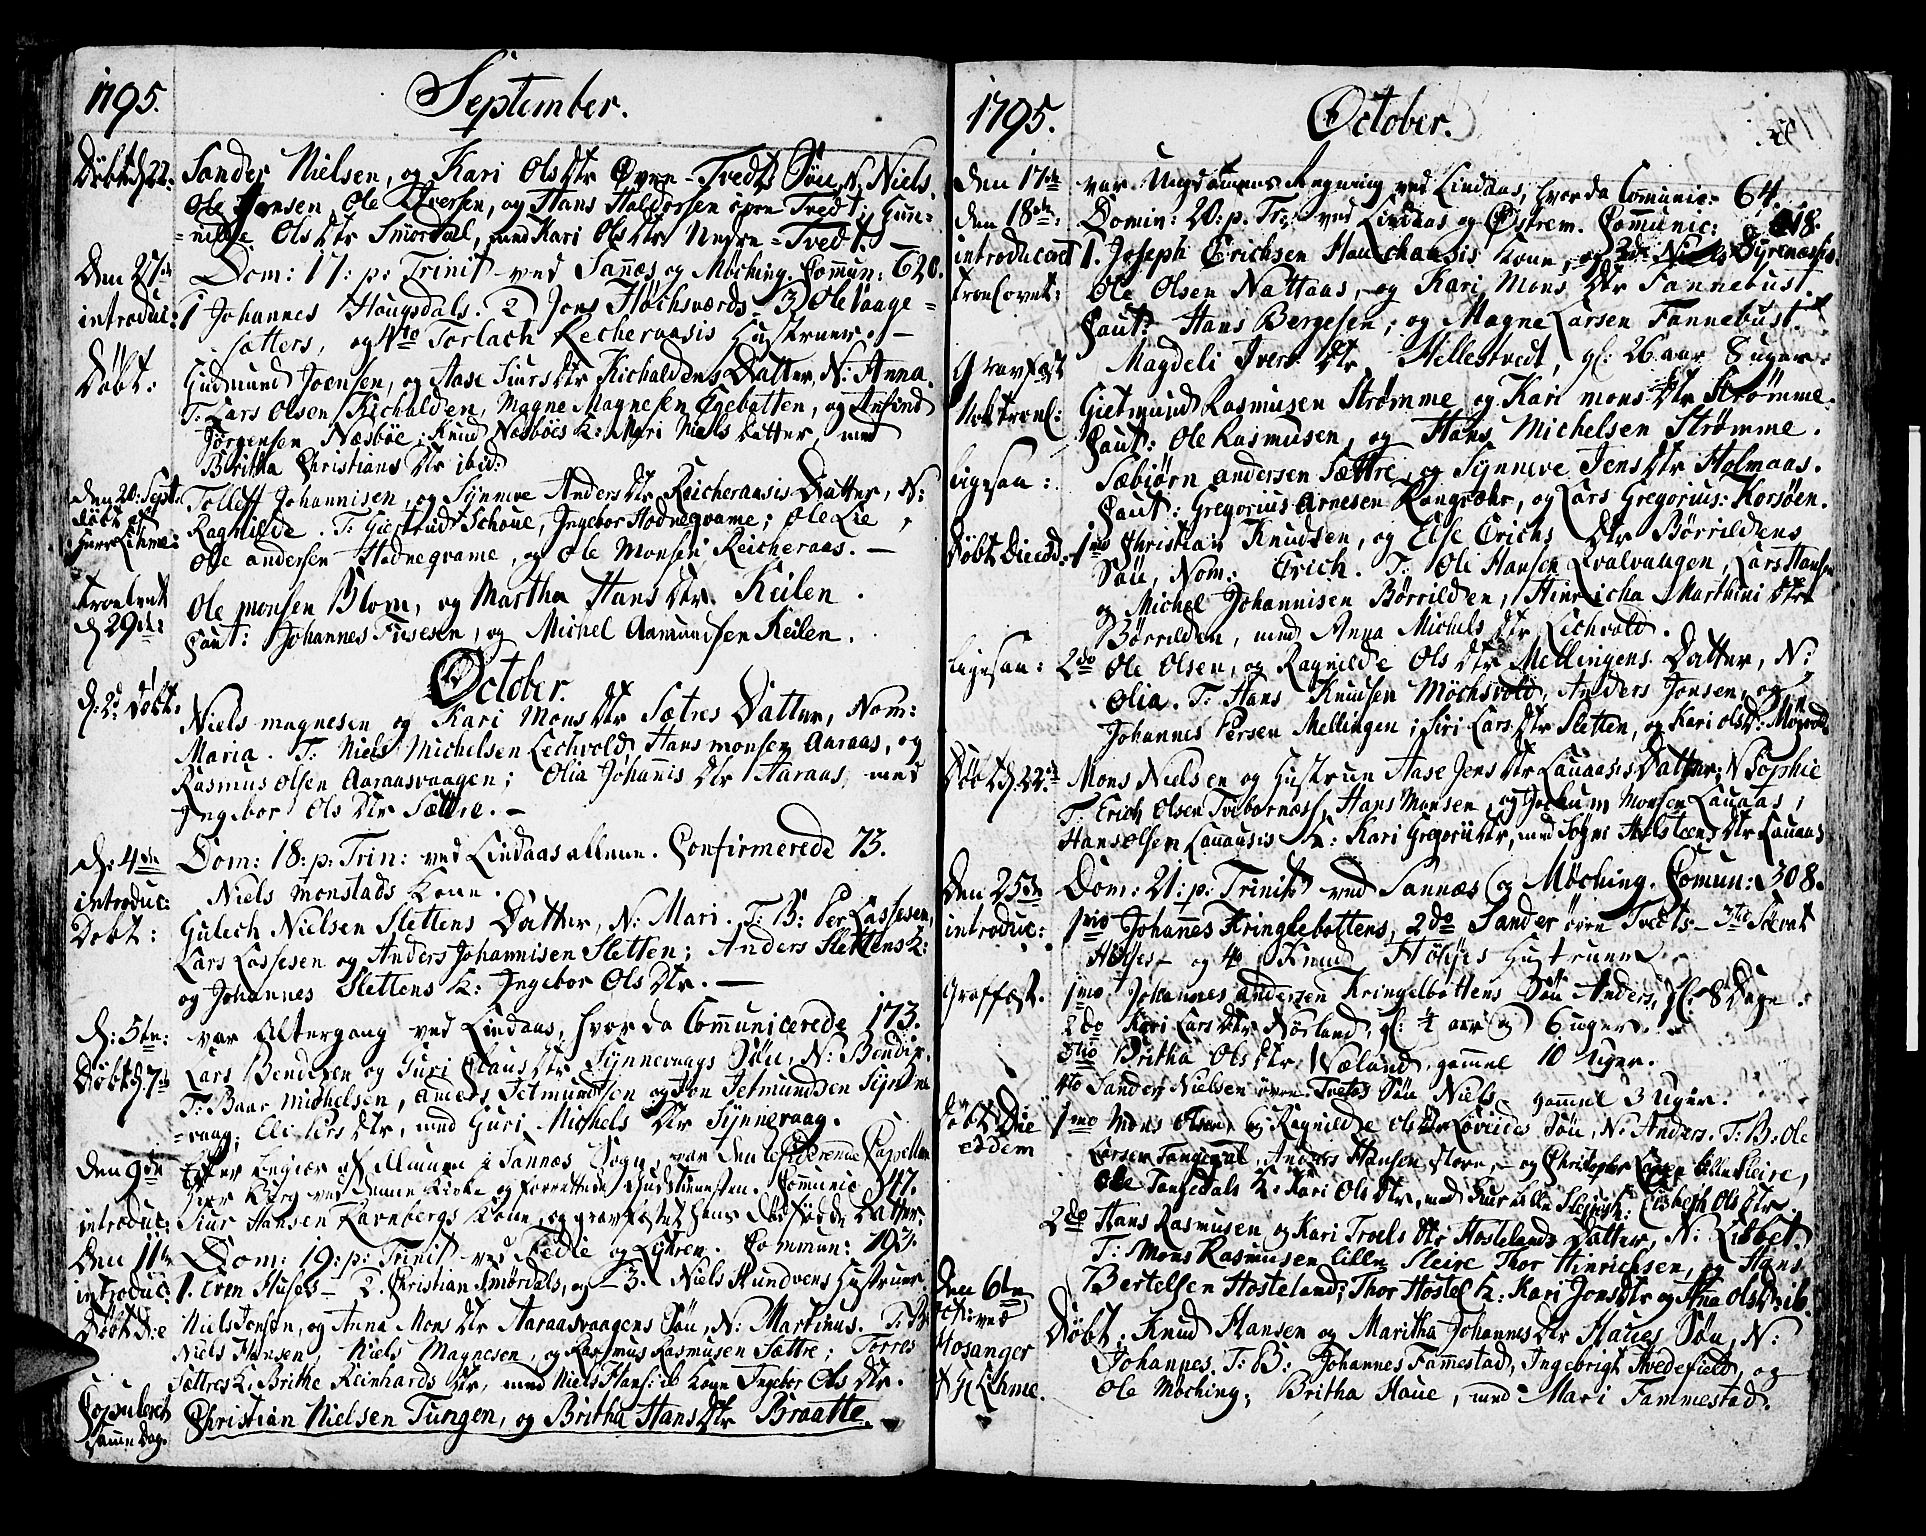 1795. September.
Döbt d. 22: Sander Nielsen, og Kari Olsdtr Øvre-Tvedts Søn, N: Niels.
Ole Jonsen, Ole Iversen, og Hans Haldorsen øvre Tvedt; Gun-
=nilde Olsdtr Smördal, med Kari Olsdtr Nedre-Tvedt. —
Den 27de Dom: 17: p: Trinit ved Sannæs og Möching. Commun: 620.
introduc: 1 Johannes Hougsdals. 2 Jens Höchsværds. 3 Ole Vaage-
sætters, og 4to Torlach Recheraasis Hustruer. —
Döbt: Gudmund Joensen, og Aase Siursdtr Kichaldens Datter, N: Anna.
T: Lars Olsen Kichalden, Magne Magnesen Egebotten, og Anfind
Jörgensen Næsböe; Knud Næsböes K: Mari Niels datter, med
Britha Christiansdtr ibid:
Den 20: Sept. Tolleff Johannisen, og Synneve Andersdtr Reicheraasis Datter, N:
döbt af Ragnilde. T: Giertrud Schoue, Ingebor Hodneqvame; Ole Lie,
Herr Lihme: Ole Andersen Hodneqvame, og Ole Monsen Reicheraas. —
Troelovet Ole Monsen Blom, og Martha Hansdtr Keilen.
d. 29de: Caut: Johannes Fiesesen, og Michel Aamundsen Keilen.
October.
d: 2d Döbt. Niels Magnesen og Kari Monsdtr Sætres Datter, Nom:
Maria. T: Niels Michelsen Lechvold, Hans Monsen Aaraas, og
Rasmus Olsen Aaraasvaagen; Olia Johannisdtr Aaraas, med
Ingebor Olsdtr Sættre. —
d: 4de Dom: 18: p: Trin: ved Lindaas allene. Confirmerede 73.
introduc: Niels Monstads Kone.
Döbt: Gulech Nielsen Slettens Datter, N: Mari. T: B: Per Lassesen,
Lars Lassesen og Anders Johannisen Sletten; Anders Slettens K:
og Johannes Slettens K: Ingebor Olsdtr. —
d: 5te: var Altergang ved Lindaas, hvor da Communicerede 173.
Döbt d. 7de Lars Bendixen og Guri Clausdtr Synnevaags Søn, N: Bendix.
T: Baar Michelsen, Anders Jetmundsen og Jon Jetmundsen Synne-
=vaag; Eli Persdtr, med Guri Michelsdtr Synnevaag.
Den 9de Efter Begiær af Almuen i Sannæs Sogn, var den residerende Cappellan
Herr Kurg ved denne Kirke og forrettede Gudstienesten. Communic: 147.
introduc: Siur Hansen Ravnbergs Kone, og gravfæstet hans dödfödde Datter.
Den 11te Dom: 19: p: Trinit ved Fedie og Lygren. Commun: 193.
introduc: 1. Even Huses — 2. Christian Smördals, og — 3. Niels Rundvens Hustruer
Döbt Die Niels Jonsen, og Anna Monsdtr Aaraasvaagens Søn, N: Martinus. T: B:
Niels Hansen, Niels Magnesen, og Rasmus Rasmusen Sættre; Torres
Sættres K: Brithe Reinhardsdtr, med Niels Hans: ib Kone Ingebor Olsdtr.
Copuleret Christian Nielsen Tungen, og Britha Hansdtr Braatte.
samme Dag.
1795. October.
Den 17de var Ungdommens Regning ved Lindaas, hvor da Comunic: 64.
Den 18de: Domin: 20: p: Tr: ved Lindaas og Østrem. Communic: 218.
introduceret 1. Joseph Erichsen Hauchaasis Kone, og 2do Niels Syrenæssis.
Troelovet: Ole Olsen Nattaas, og Kari Monsdtr Fannebust.
Caut: Hans Bergesen, og Magne Larsen Fannebust.
Gravfæst Magdeli Iversdtr Hillestvedt, gl: 26 aar 8 uger.
Nok troel: Gietmund Rasmusen Strømme og Kari Monsdtr Strømme.
Caut: Ole Rasmusen, og Hans Michelsen Strømme.
ligesaa: Sæbiørn Andersen Sættre, og Synneve Jensdtr Holmaas.
Caut: Gregorius Arnesen Rongvær, og Lars Gregorius: Korsöen.
Döbt Die ed: 1mo Christian Knudsen, og Else Erichsdtr Börrildens
Søn, Nom: Erich. T: Ole Hansen Qvalvaagen, Lars Hansen
og Michel Johannisen Börrilden; Hinricha Marthini dtr
Börrilden, med Anna Michelsdtr Lichvold.
ligesaa: 2do Ole Olsen, og Ragnilde Olsdtr Mellingens Datter, N:
Olia. T: Hans Knudsen Möchsvold, Anders Jonsen, og
Johannes Persen Mellingen; Siri Larsdtr Sletten, og Kari Olsd: Mögvold
Döbt d. 22de Mons Nielsen og Hustrue Aase Jensdtr Lauaasis Datter, N Sophie
T: Erich Olsen Tvibornæss, Hans Monsen, og Jochum Monsen Lauaas;
Hans Olsen Lauaasis K: Kari Gregoriidtr, med Signi Halsteensdtr Lauaas
Den 25de Dom: 21: p: Trinit ved Sannæs og Möching. Comun: 308.
introduc: 1mo Johannes Kringlebottens, 2do Sander övre Tvedts — 3tio Sivert
Höyses — og 4 Knud Höyses Hustruer.
Graffæst. 1mo Johannes Andersen Kringelbottens Søn Anders, gl: 8 Dage.
2do Kari Larsdtr Nörland, gl: ¼ aar og 6 uger.
3tio Britha Olsdtr Wæland, gammel 10 Uger.
4to Sander Nielsen övre Tvetes Søn Niels, gammel 3 Uger.
Döbt Die 1mo Mons Olsen og Ragnilde Olsdtr Lövindes Søn, N: Anders. T: B: Ole
eodem Larsen Tangedal, Anders Hansen store — og Christopher Larsen lille Sleire,
Ole Tangedals K: Kari Olsdtr, med Lisbeth Olsdtr.
2do Hans Rasmusen og Kari Troelsdtr Hostelands Datter, N: Lisbet.
T: Mons Rasmusen lille Sleire, Thor Hinrichsen, og Hans
Bertelsen Hosteland; Thor Hostel: K: Kari Jonsdtr og Ana Olsd: ib.
Den 6te Döbt: Knud Hansen og Maritha Johannesdtr Haues Søn, N:
Hosanger Johannes. T: B: Johannes Famestad, Ingebrigt Hvedefield, og
H Lihme. Ole Möching; Britha Haue, med Mari Fammestad.